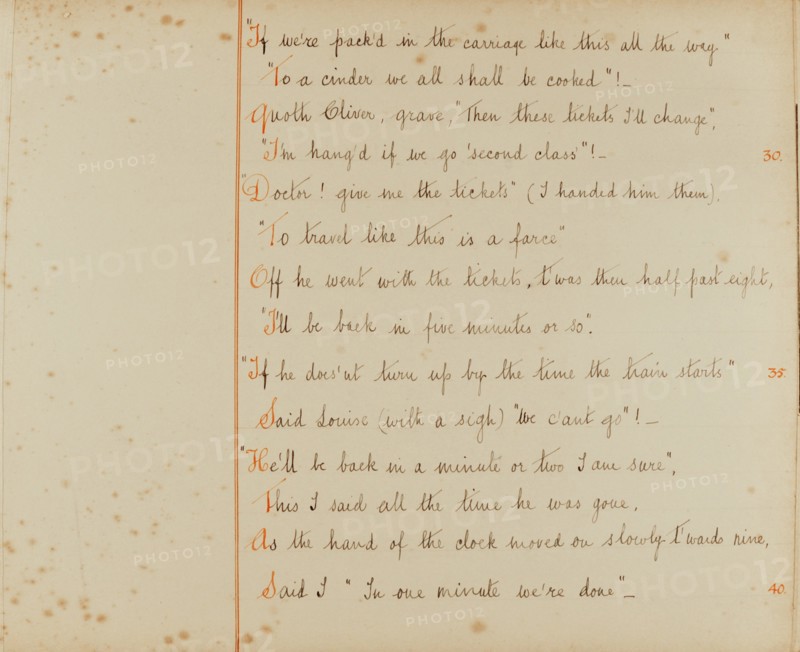 "If we're pack'd in the carriage like this all the way"
"To a cinder we all shall be cooked"!_
Quoth Oliver, grave, "Then these tickets I'll change",
"I'm hang'd if we go 'second class'"!_
30.
"Doctor! give me the tickets" (I handed him them),
"To travel like this is a farce"
Off he went with the tickets, t'was then half past eight,
"I'll be back in five minutes or so".
"If he does'nt turn up by the time the train starts"
35.
Said Louise (with a sigh) "We c'ant go"!_
"He'll be back in a minute or two I am sure",
This I said all the time he was gone,
As the hand of the clock moved on slowly t'wards nine,
Said I "In one minute we're done"_
40.
PHOTO12